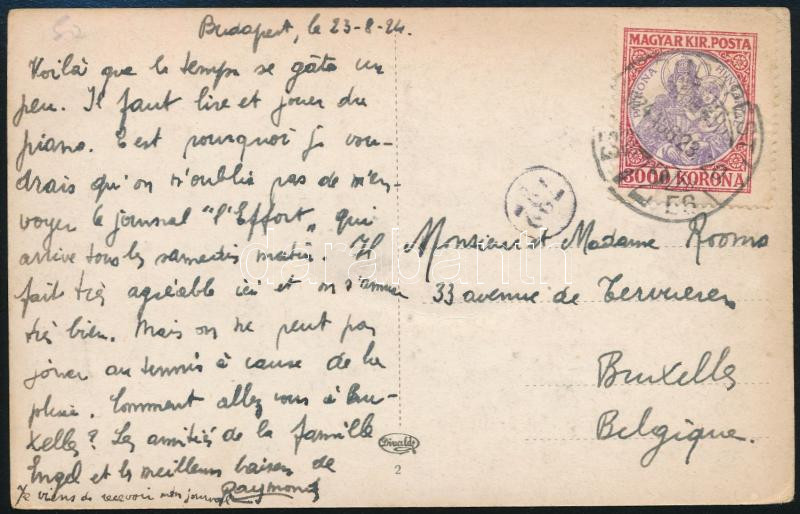 Budapest, le 23-8-24.
Voilà que le temps se gâte un
peu. Il faut lire et jouer du
piano. C'est pourquoi je vou-
drais qu'on n'oublie pas de m'en-
voyer le journal "l'Effort„ qui
arrive tous les samedis matin. Il
fait très agréable ici et on s'amuse
très bien. Mais on ne peut pas
jouer au tennis à cause de la
pluie. Comment allez vous à Bru-
xelles? Les amitiés de la famille
Engel et les meilleurs baisers de
Raymond
Je viens de recevoir mon journal
MAGYAR KIR. POSTA
PATRONA HUNGARIAE
3000 KORONA
Monsieur et Madame Rooms
33 avenue de Tervueren
Bruxelles
Belgique.
Divald
2
darabanth